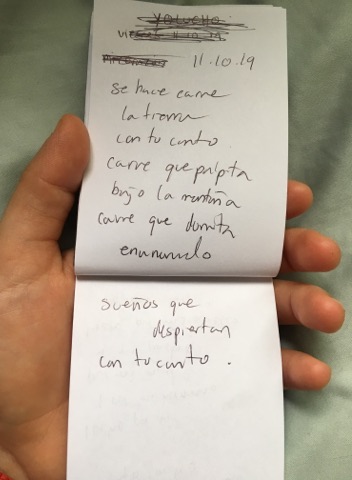 11.10.19
se hace carne
la tierra
con tu canto
carne que palpita
bajo la montaña
carne que dormita
enanunulo
sueños que
despiertan
con tu canto.